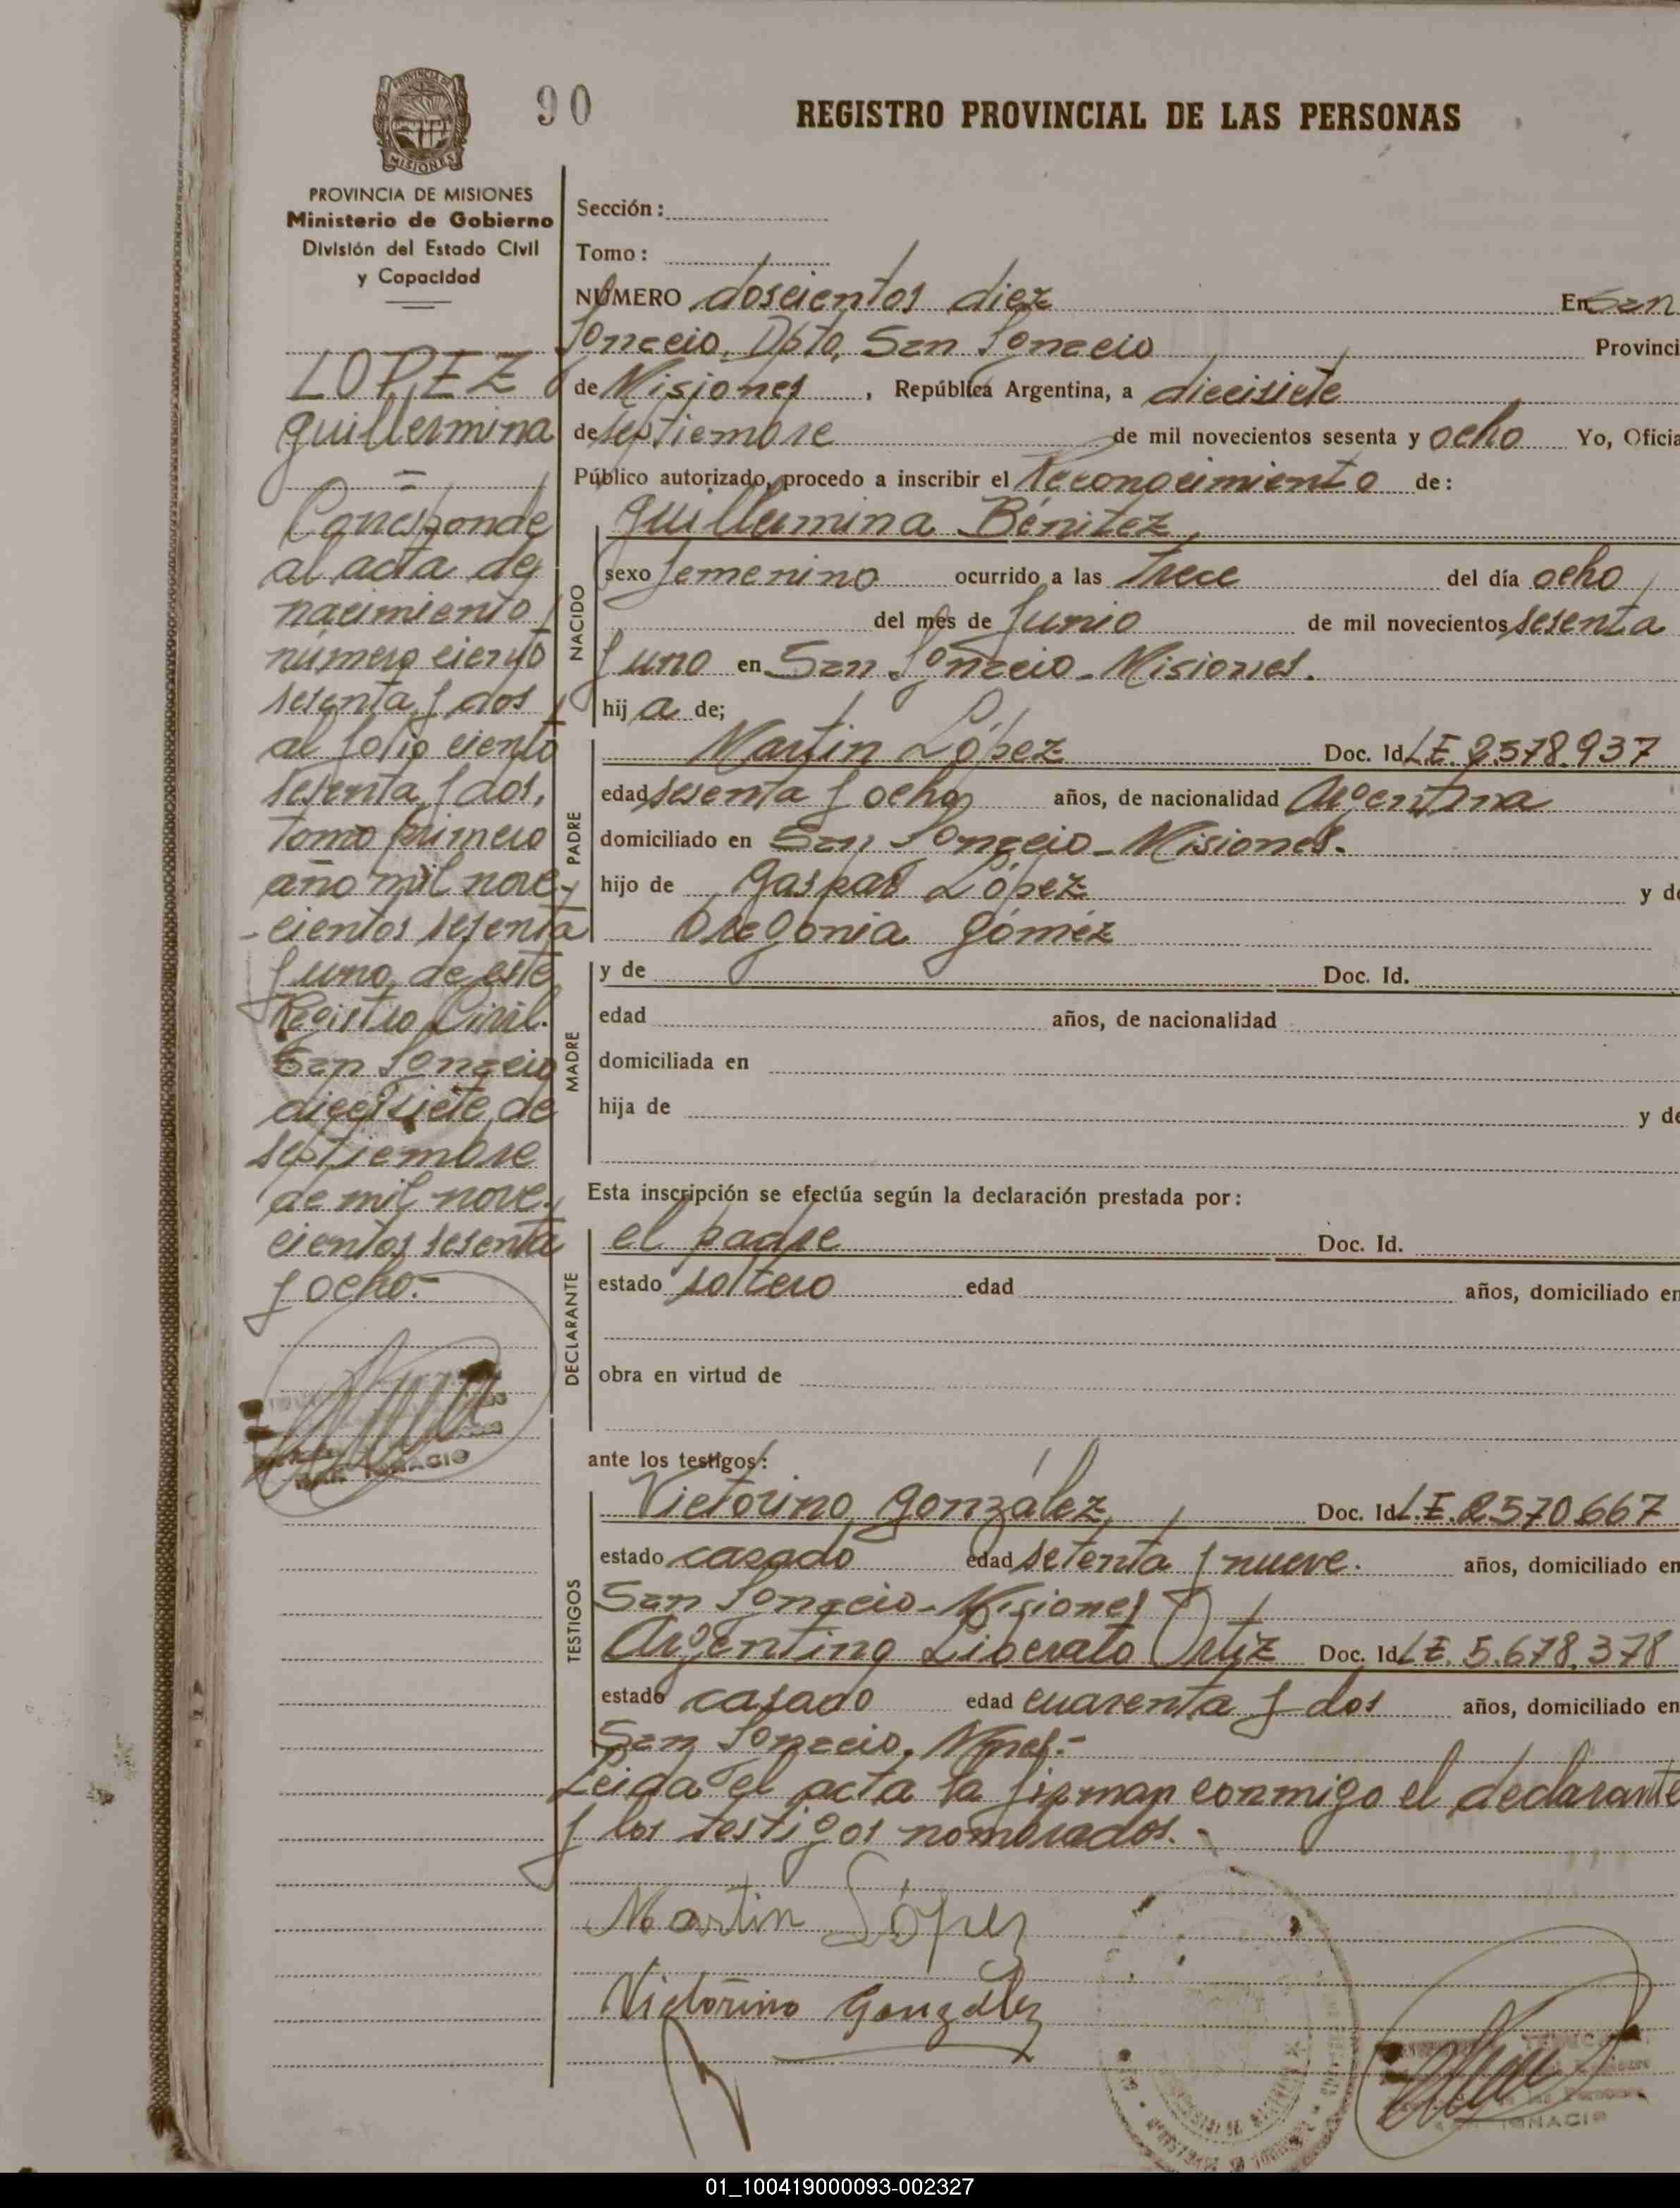 90
REGISTRO PROVINCIAL DE LAS PERSONAS
PROVINCIA DE MISIONES
Ministerio de Gobierno
División del Estado Civil
y Capacidad
LOPEZ
Guillermina
=
Corresponde
al acta de
nacimiento
número ciento
sesenta y dos
al folio ciento
sesenta y dos,
tomo primero
año mil nove-
cientos sesenta
y uno, de este
Registro Civil.
San Ignacio
diecisiete de
septiembre
de mil nove-
cientos sesenta
y ocho.-
Sección:
Tomo:
NÚMERO doscientos diez En San
Ignacio, Dpto, San Ignacio Provinci
de Misiones, República Argentina, a diecisiete
de septiembre de mil novecientos sesenta y ocho Yo, Oficia
Público autorizado, procedo a inscribir el Reconocimiento de:
NACIDO
Guillermina Bénitez
sexo femenino ocurrido a las trece del día ocho
del mes de Junio de mil novecientos sesenta
y uno en San Ignacio - Misiones.
hija de;
PADRE
Martin López Doc. Id. L.E. 2.578.937
edad sesenta y ocho años, de nacionalidad Argentina
domiciliado en San Ignacio - Misiones.
hijo de Gaspar López y de
Obregonia Gómez
MADRE
y de Doc. Id.
edad años, de nacionalidad
domiciliada en
hija de y de
Esta inscripción se efectúa según la declaración prestada por:
DECLARANTE
el padre Doc. Id.
estado soltero edad años, domiciliado en
obra en virtud de
ante los testigos:
TESTIGOS
Victorino González, Doc. Id. L.E. 2570667
estado casado edad setenta y nueve. años, domiciliado en
San Ignacio - Misiones
Argentino Liberato Ortiz Doc. Id. L.E. 5.678.378
estado casado edad cuarenta y dos años, domiciliado en
San Ignacio, Mnes.-
Leida el acta la firman conmigo el declarante
y los testigos nombrados.-
Martin López
Victorino González
IGNACIO
01_100419000093-002327